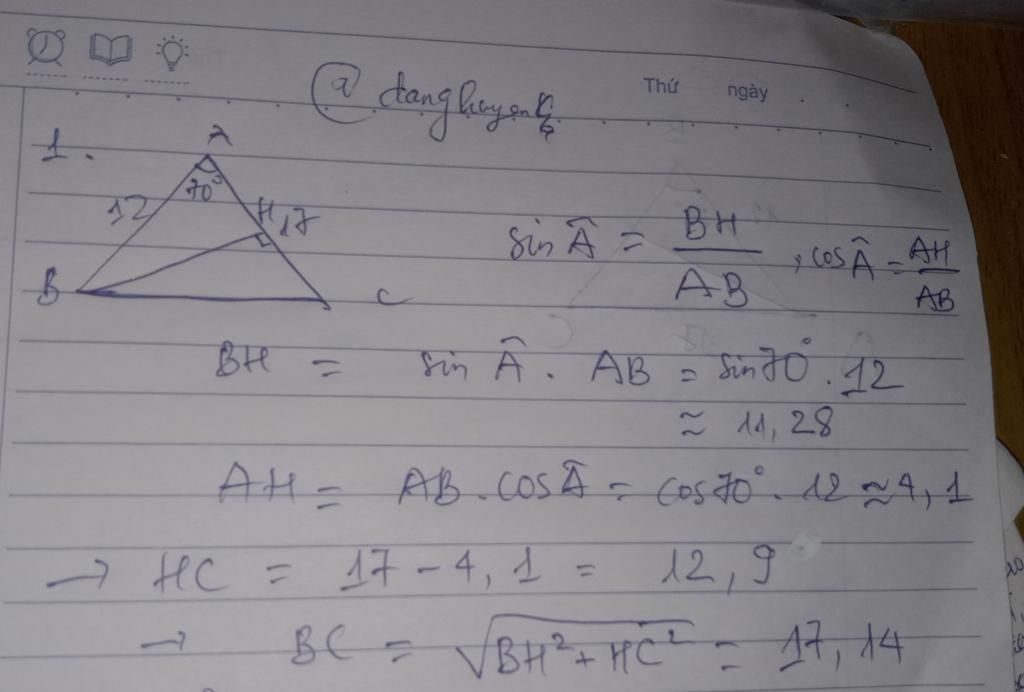 Thứ ngày
1.
A
70°
12
H 17
B C
sin Â = BH / AB , cos Â = AH / AB
BH = sin Â . AB = sin 70° . 12
≈ 11,28
AH = AB . cos Â = cos 70° . 12 ≈ 4,1
→ HC = 17 - 4,1 = 12,9
→ BC = √BH² + HC² = 17,14